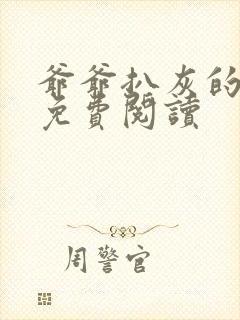 爺爺扒灰的
免費閱讀
周警官